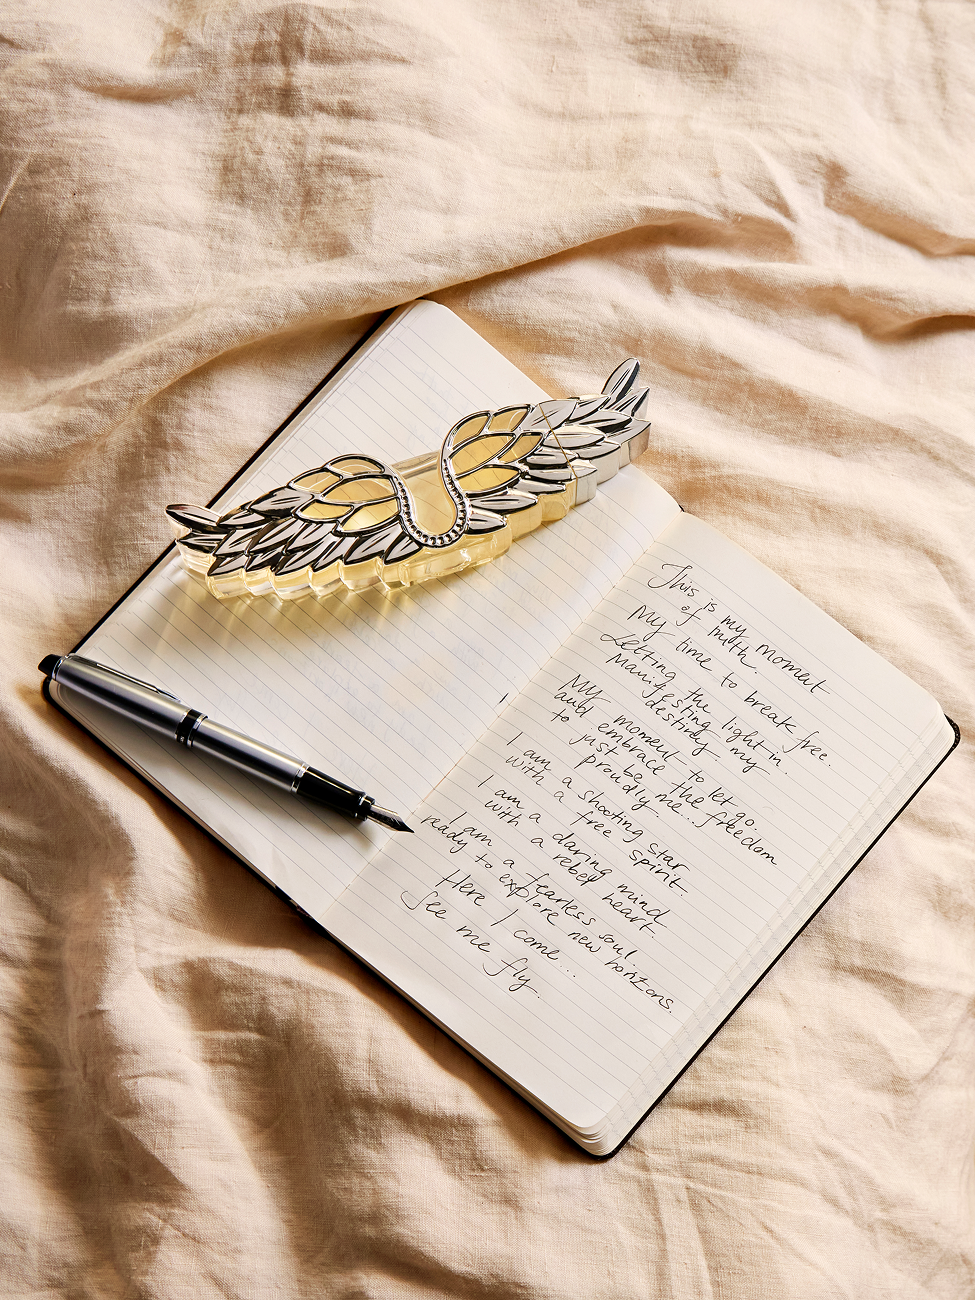 This is my moment
of truth.
My time to break free.
Letting the light in.
Manifesting my
destiny.
My moment to let go.
and embrace the freedom
to just be me...
proudly
I am a shooting star
with a free spirit.
I am a daring mind
with a rebel heart.
I am a fearless soul
ready to explore new horizons.
Here I come...
See me fly.